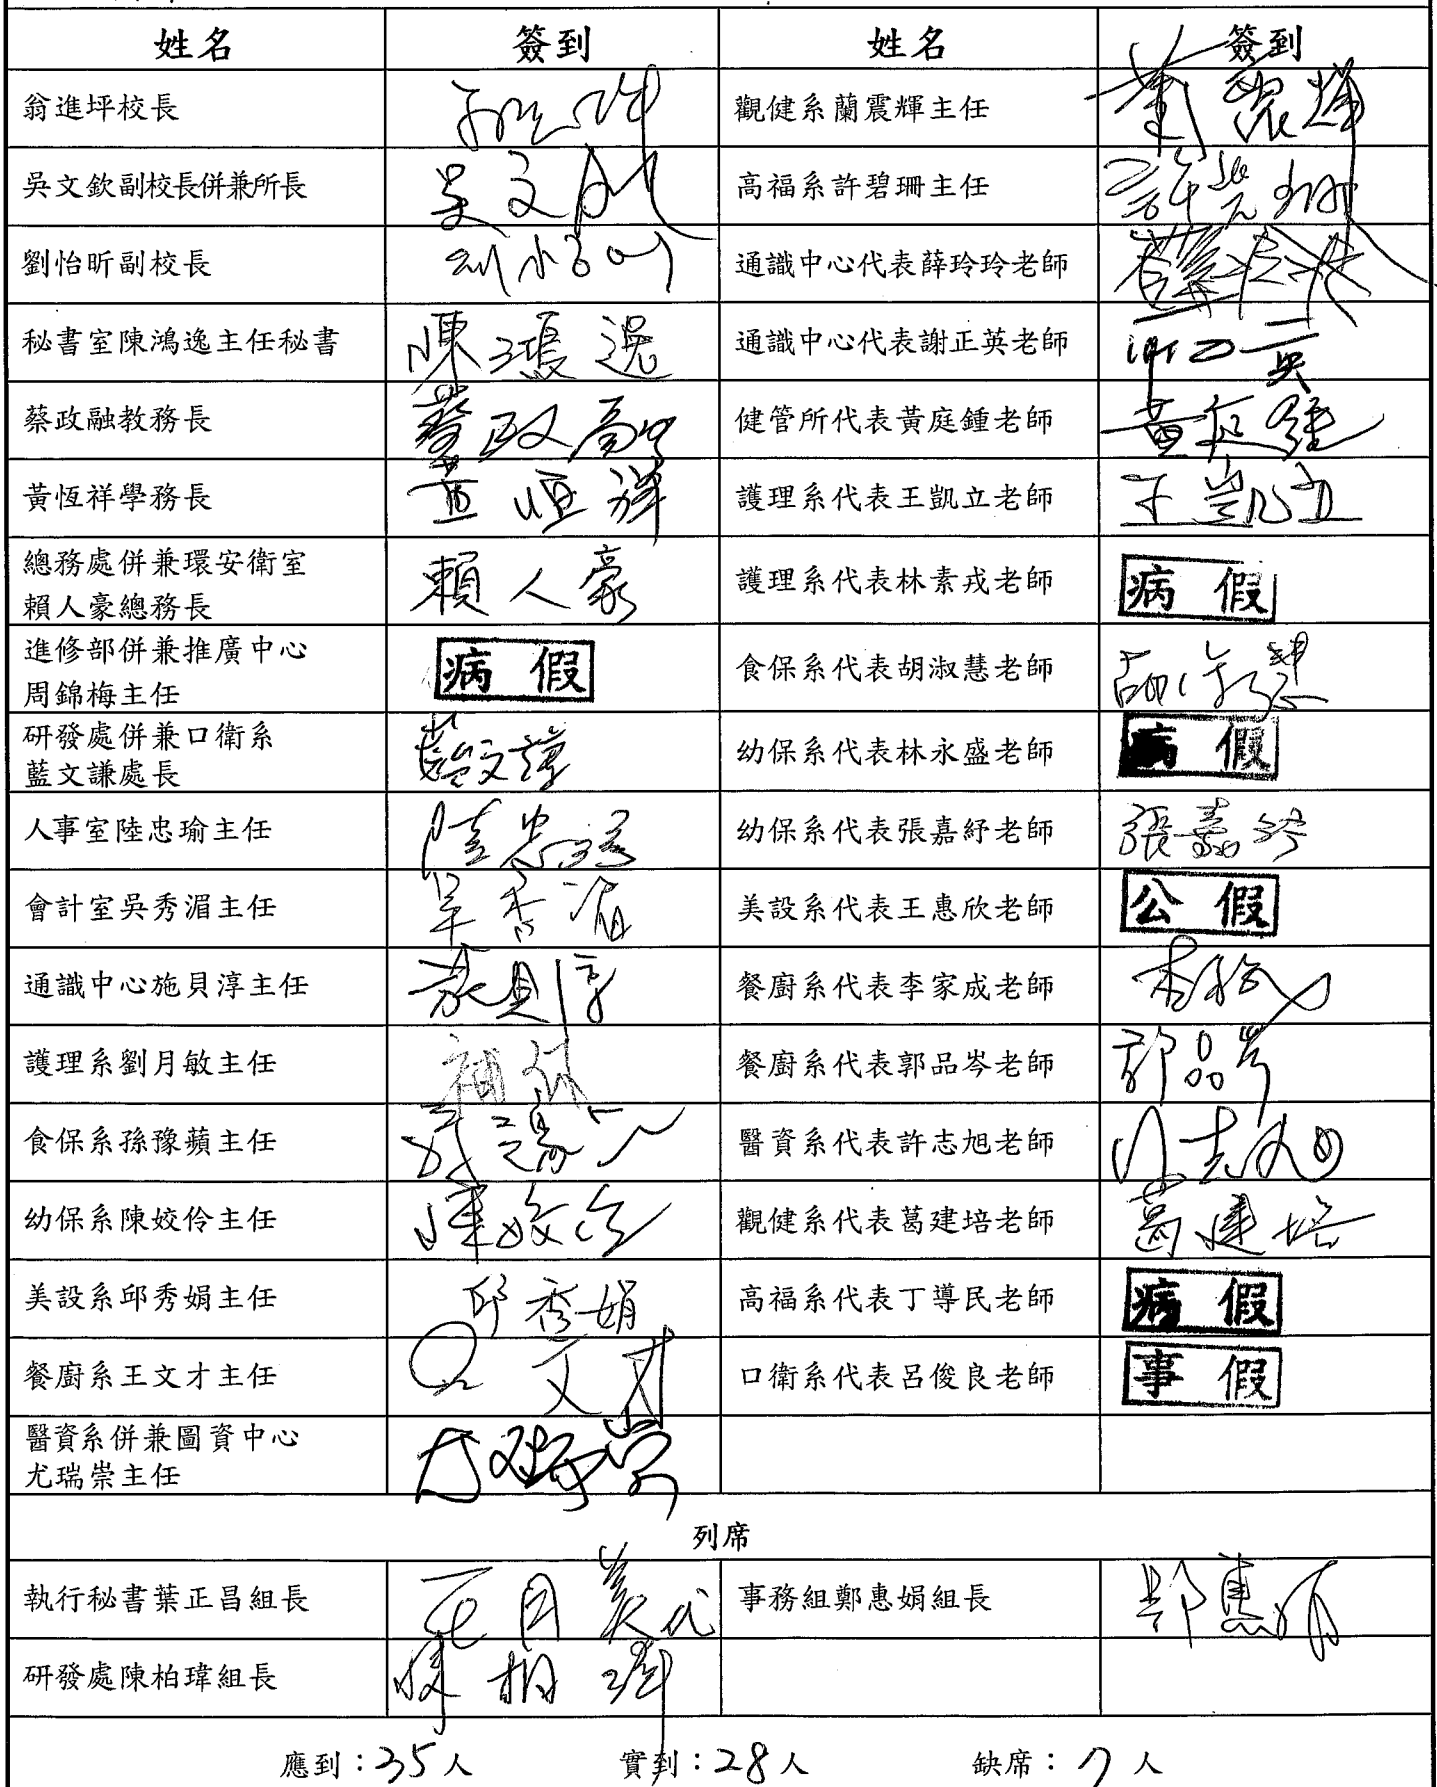 姓名 簽到 姓名 簽到
翁進坪校長 觀健系蘭震輝主任
吳文欽副校長併兼所長 吳文 高福系許碧珊主任 許碧珊
劉怡昕副校長 通識中心代表薛玲玲老師 薛
秘書室陳鴻逸主任秘書 陳鴻逸 通識中心代表謝正英老師
蔡政融教務長 蔡政融 健管所代表黃庭鍾老師 黃庭鍾
黃恆祥學務長 黃恒祥 護理系代表王凱立老師 王凱立
總務處併兼環安衛室
賴人豪總務長 賴人豪 護理系代表林素戎老師 病假
進修部併兼推廣中心
周錦梅主任 病假 食保系代表胡淑慧老師 胡淑慧
研發處併兼口衛系
藍文謙處長 藍文謙 幼保系代表林永盛老師 病假
人事室陸忠瑜主任 陸忠瑜 幼保系代表張嘉紓老師 張嘉紓
會計室吳秀湄主任 吳秀湄 美設系代表王惠欣老師 公假
通識中心施貝淳主任 施貝淳 餐廚系代表李家成老師
護理系劉月敏主任 補休 餐廚系代表郭品岑老師 郭品岑
食保系孫豫蘋主任 醫資系代表許志旭老師 許志旭
幼保系陳姣伶主任 陳姣伶 觀健系代表葛建培老師 葛建培
美設系邱秀娟主任 邱秀娟 高福系代表丁導民老師 病假
餐廚系王文才主任 王文才 口衛系代表呂俊良老師 事假
醫資系併兼圖資中心
尤瑞崇主任 尤瑞崇
列席
執行秘書葉正昌組長 事務組鄭惠娟組長 鄭惠娟
研發處陳柏瑋組長 陳柏瑋
應到：35人 實到：28人 缺席：7人